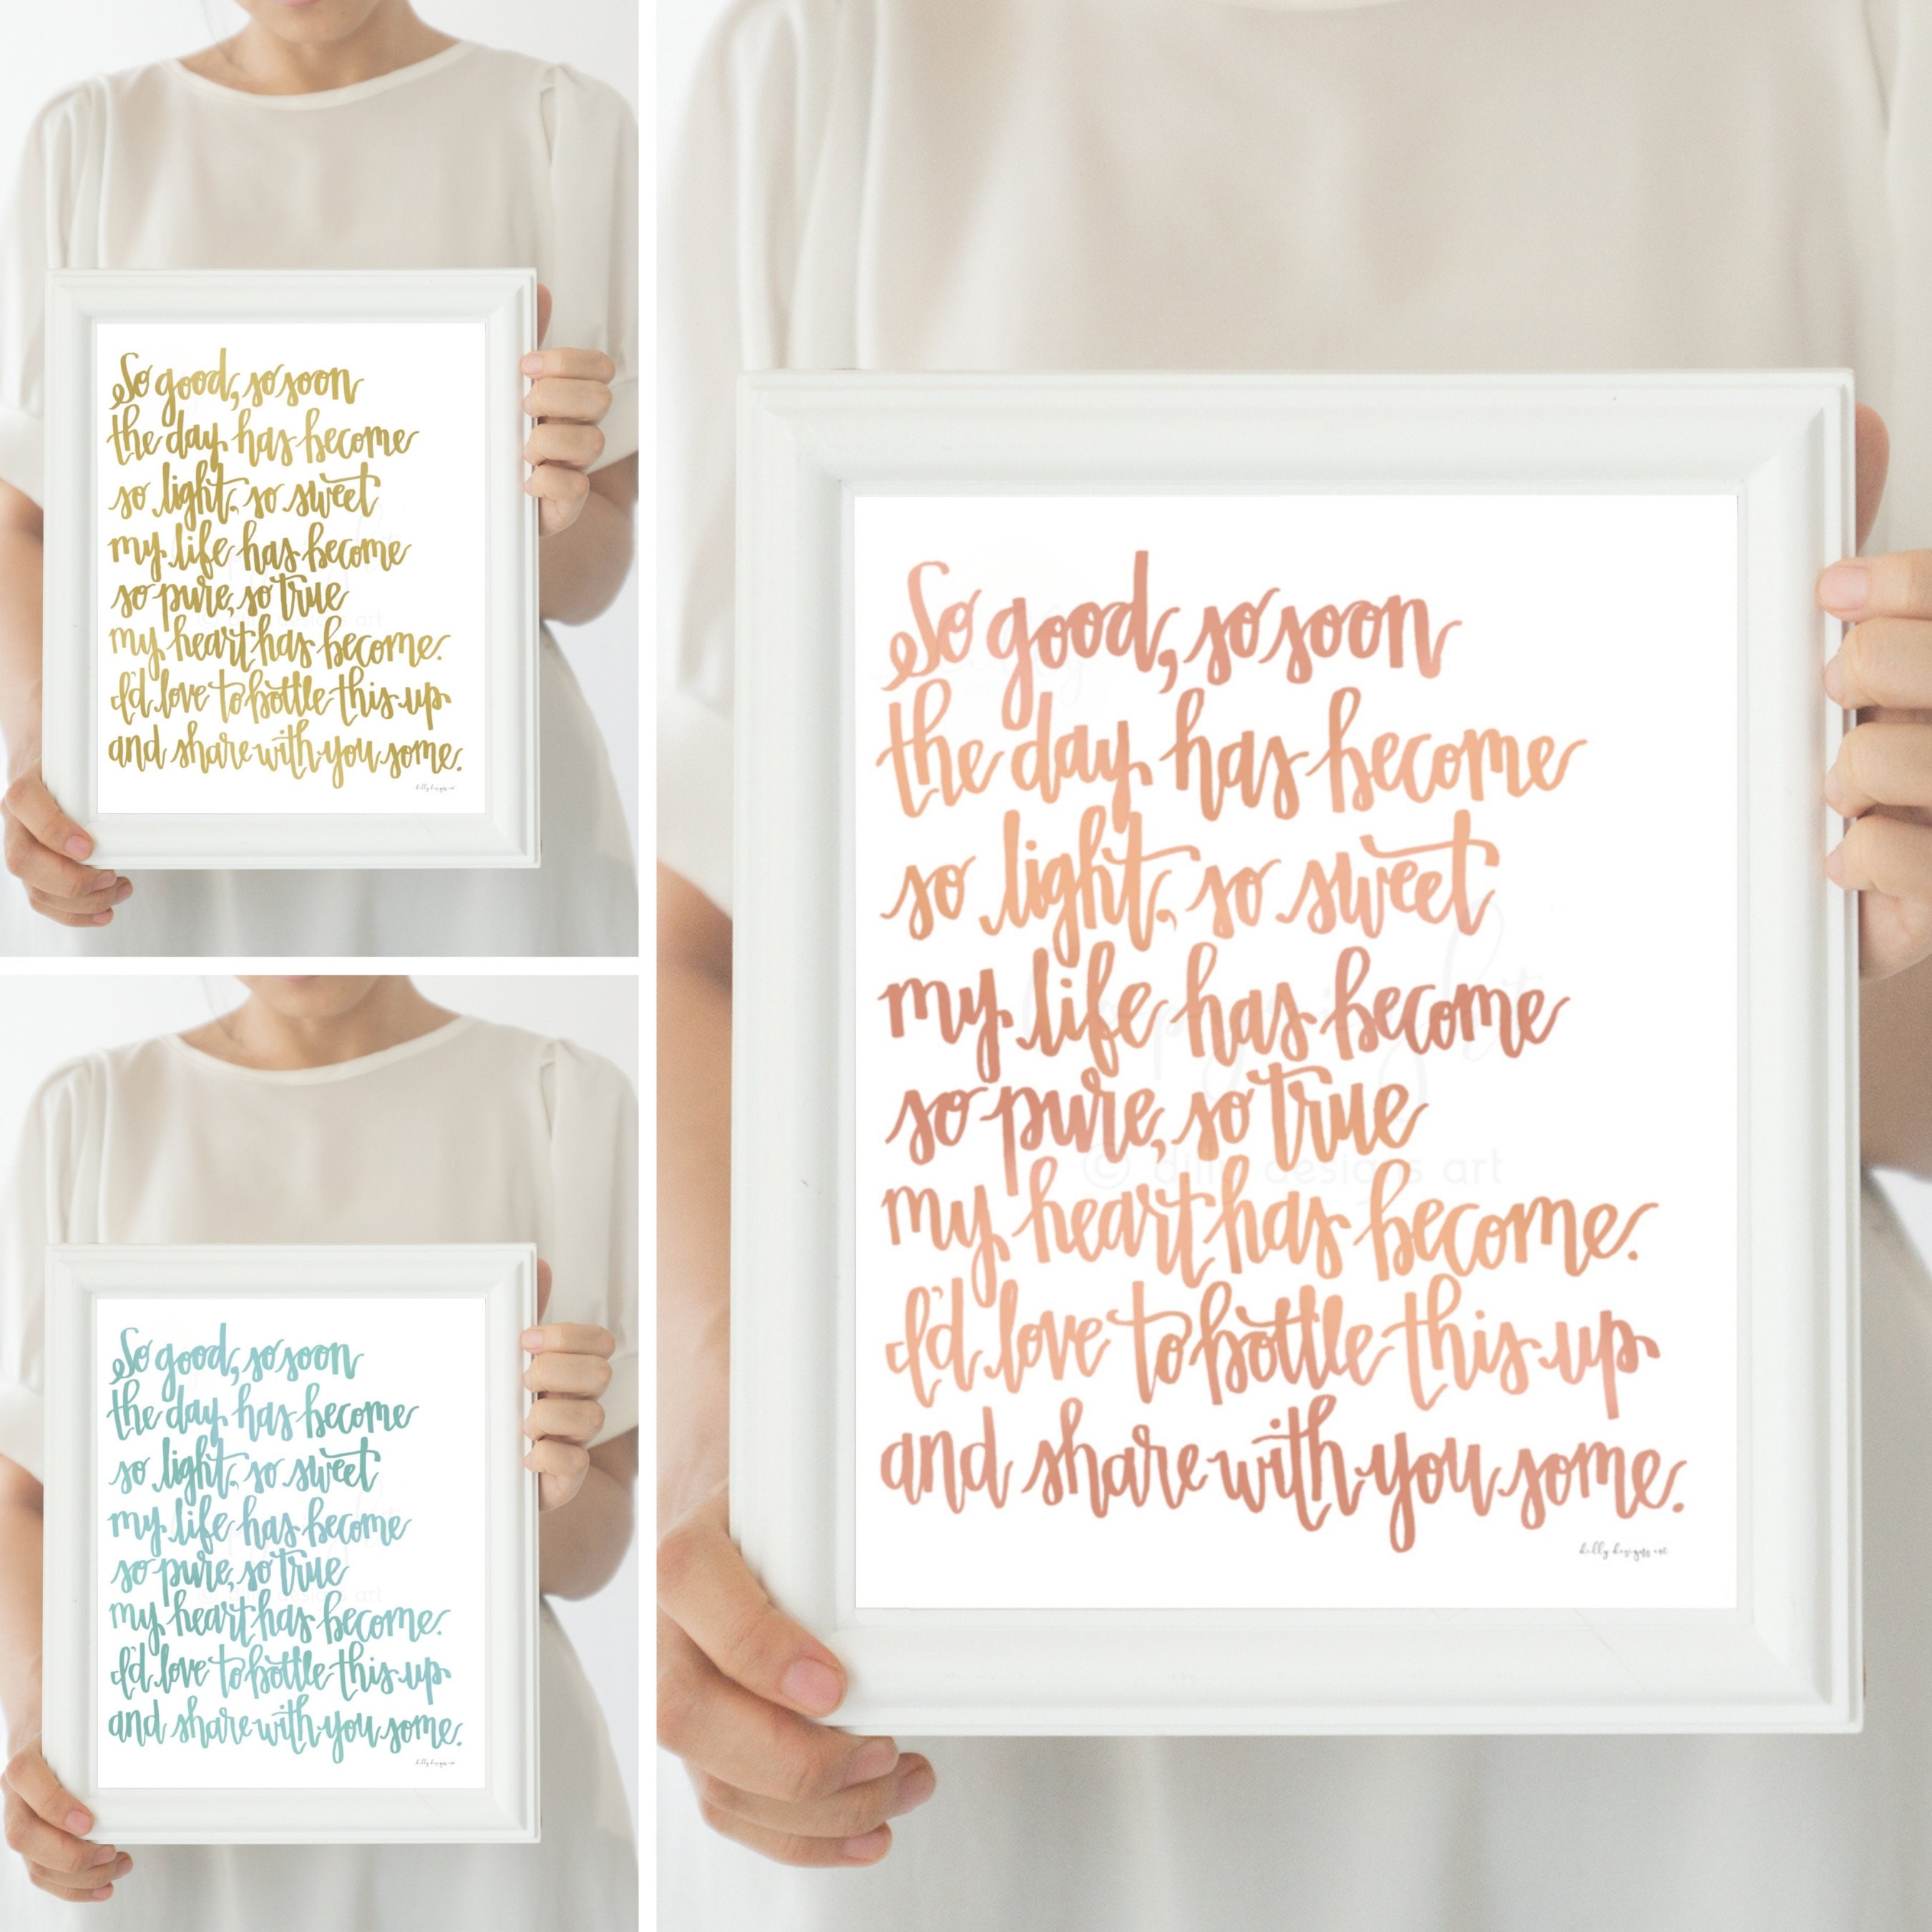 So good, so soon
the day has become
so light, so sweet
my life has become
so pure, so true
my heart has become.
I'd love to bottle this up
and share with you some.
dilly designs art
So good, so soon
the day has become
so light, so sweet
my life has become
so pure, so true
my heart has become.
I'd love to bottle this up
and share with you some.
dilly designs art
So good, so soon
the day has become
so light, so sweet
my life has become
so pure, so true
© dilly designs art
my heart has become.
I'd love to bottle this up
and share with you some.
dilly designs art